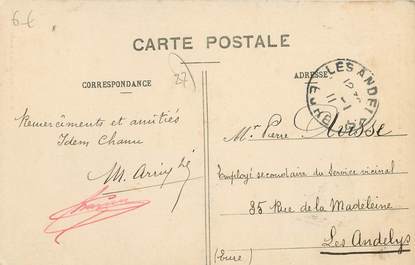 6 €
CARTE POSTALE
CORRESPONDANCE
ADRESSE
22
LES ANDELYS
EURE
Remercîments et amitiés
Idem
Mr Pierre
Employé secondaire du Service vicinal
35 Rue de la Madeleine
Les Andelys
(Eure)